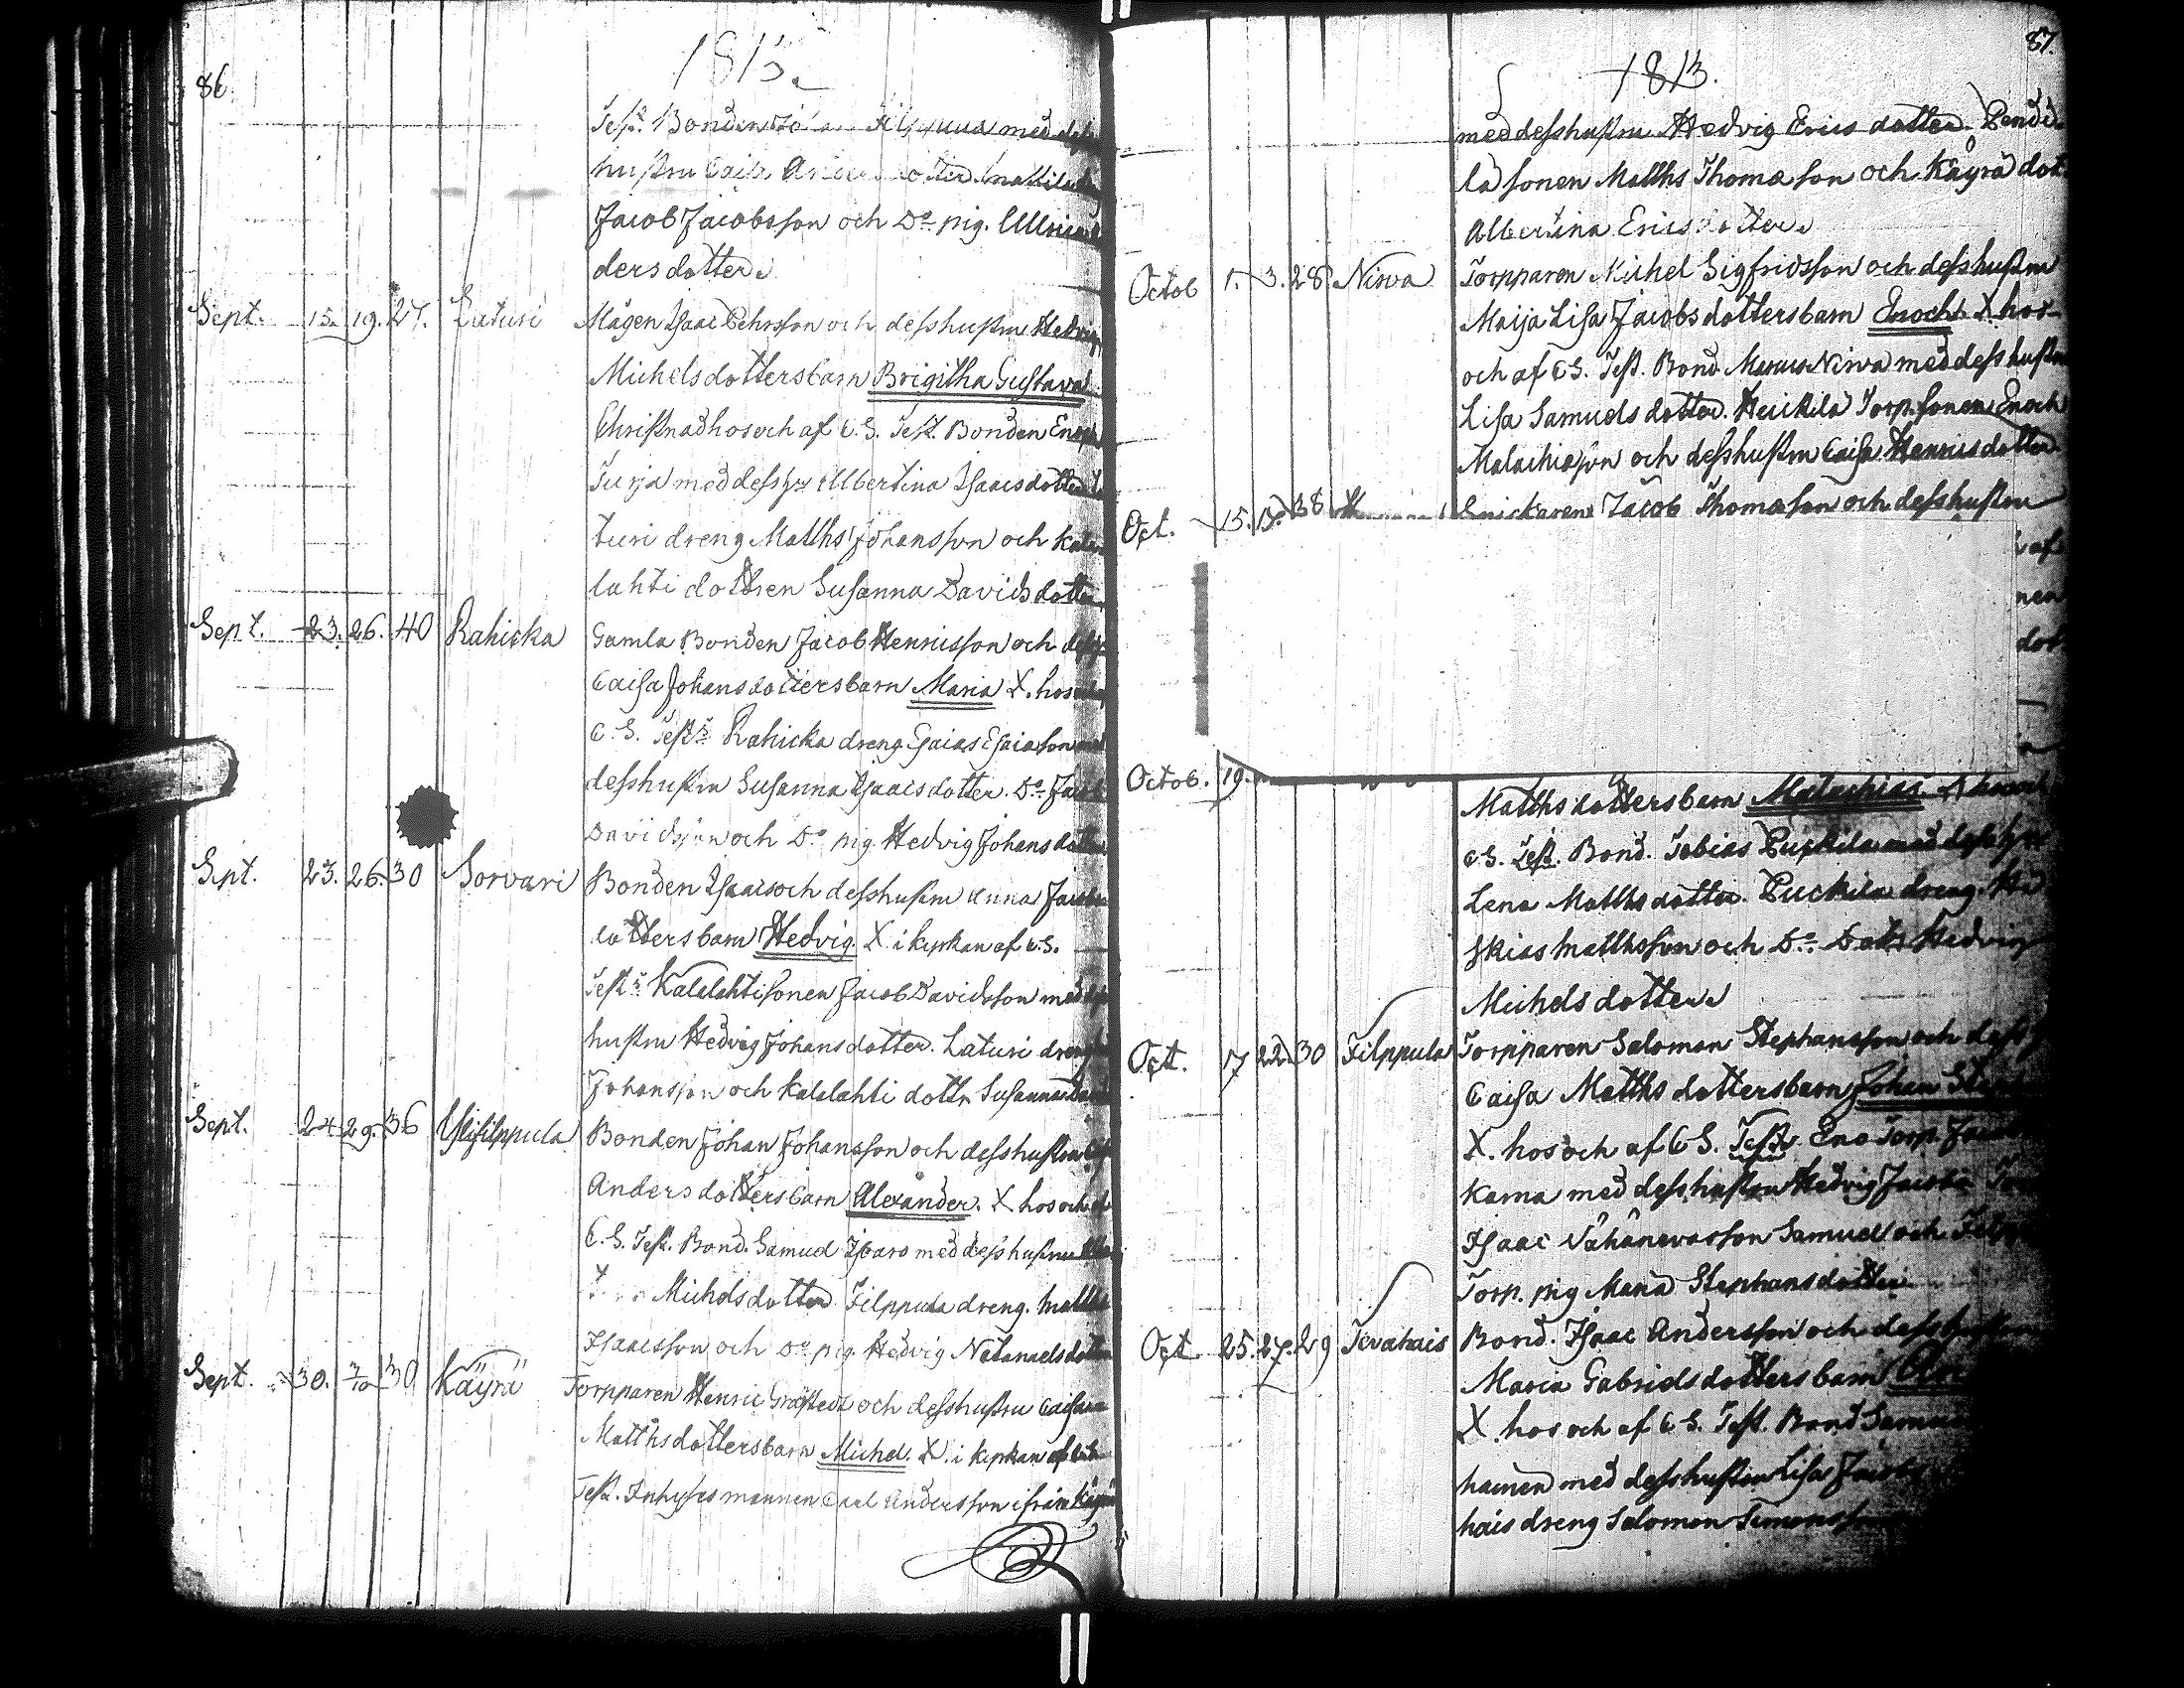 86.
1813.
Test. Bonden med dess
hustru Caisa dotter.
Jacob Jacobsson och Do pig. Ullrica
ders dotter.
Sept. 15. 19. 27. Laturi Mågen Isaac Pehrsson och desshustru Hedvig
Michelsdotters barn Brigitha Gustava
Christnad hos och af C.S. Test. Bonden Enoch
Turja med dess hu Albertina Isaacsdotter La
turi dreng Matths Johansson och Kala
lahti dottren Susanna Davidsdotter
Sept. 23. 26. 40 Rahicka Gamla Bonden Jacob Henricsson och dess
Caisa Johansdotters barn Maria X. hos
C.S. Test. Rahicka dreng Esaias Esaiasson
desshustru Susanna Isaacsdotter. Do Jacob
Davidsson och Do pig Hedvig Johansdotter
Sept. 23. 26. 30 Sorvari Bonden Isaac och desshustru Anna Jacobs
dottersbarn Hedvig X i kyrkan af C.S.
Test. Kalalahti sonen Jacob Davidsson med dess
hustru Hedvig Johansdotter. Laturi dreng
Johansson och Kalalahti dottr Susanna
Sept. 24 29. 36 Ylifilppula Bonden Johan Johansson och desshustru
Andersdottersbarn Alexander. X hos och af
C.S. Test. Bond. Samuel med desshustru
Michelsdotter Filppula dreng. Matths
Isaacsson och Do pig. Hedvig Natanaelsdotter
Sept. 30. 3/10 30 Käyrä Torpparen Henric och desshustru Caisa
Matthsdottersbarn Michel. X. i kyrkan af C.S.
Test. Inhyses mannen Carl Andersson ifrån Käyrä
87.
1813.
med desshustru Hedvig Ericsdotter. Pendi
lä sonen Matths Thomæson och Käyrä dot
Albertina Ericsdotter.
Octob 1. 3. 28 Nirva Torpparen Michel Sigfridsson och desshustru
Maija Lisa Jacobsdottersbarn Enoch X hos
och af C.S. Test. Bond. Nirva med desshustru
Lisa Samuelsdotter. Heickilä Torp. sonen Enoch
Malachiasson och desshustru Caisa Henricsdotter
Oct. 15. 17. 38 Snickaren Jacob Thomæson och desshustru
Octob. 19.
Matthsdottersbarn Malachias X hos och
C.S. Test. Bond. Tobias Puckila med dess hu
Lena Matthsdotter. Puckila dreng. He
skias Matthsson och Do Dottr Hedvig
Michelsdotter.
Oct. 17 22. 30 Filppula Torpparen Salomon Stephansson och dess
Caisa Matthsdottersbarn Johan
X. hos och af C.S. Test. Eno Torp.
Karna med desshustru Hedvig Jacobs
Isaac Samuel och
Torp. pig Maria Stephansdotter
Oct. 25. 27. 29 Tevahais Bond. Isaac Andersson och dess
Maria Gabrielsdottersbarn
X. hos och af C.S. Test. Bond Samuel
hainen med desshustru Lisa Jacobs
hais dreng Salomon Simonsson